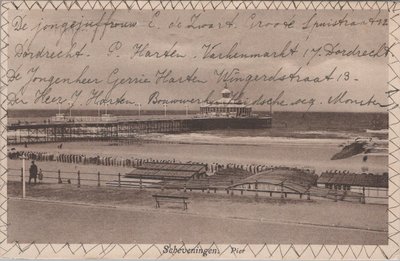 De jongejuffrouw C. de Zwart. Groote Spuistraat 12
Dordrecht. P. Harten. Varkenmarkt 17. Dordrecht
De Jongenheer Gerrie Harten Wingerdstraat 13
Der Heer J. Harten Bouwwerk
Scheveningen. Pier